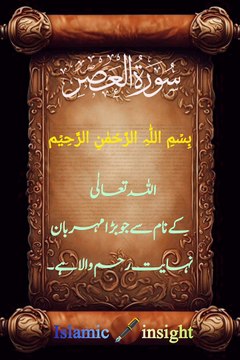 سورة العصر
بِسْمِ اللّٰهِ الرَّحْمٰنِ الرَّحِیْمِ
اللہ تعالٰی
کے نام سے جو بڑا مہربان
نہایت رحم والا ہے۔
Islamic insight